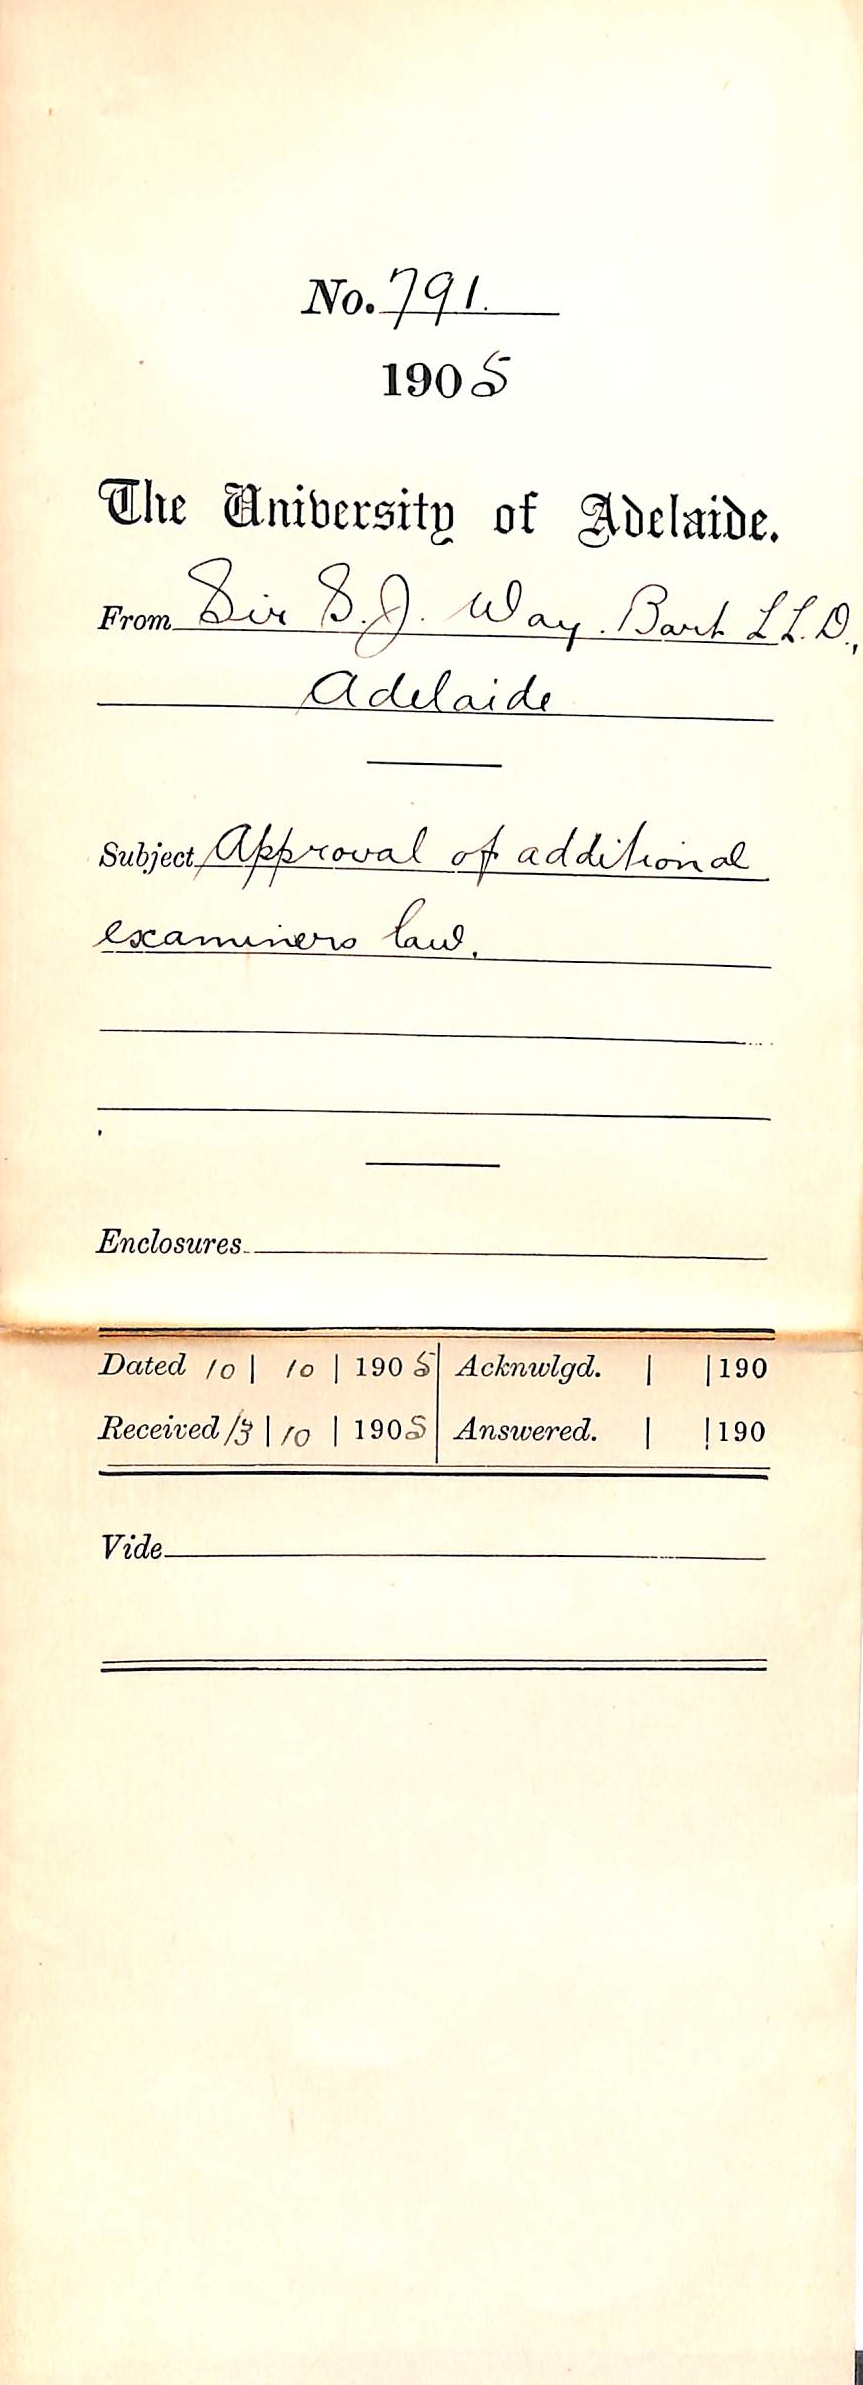 No. 791.
1905
The University of Adelaide.
From Sir S. J. Way. Bart LL.D.,
Adelaide
Subject Approval of additional
examiners law.
Enclosures
Dated 10 | 10 | 1905 Acknwlgd. | | 190
Received 13 | 10 | 1905 Answered. | | 190
Vide